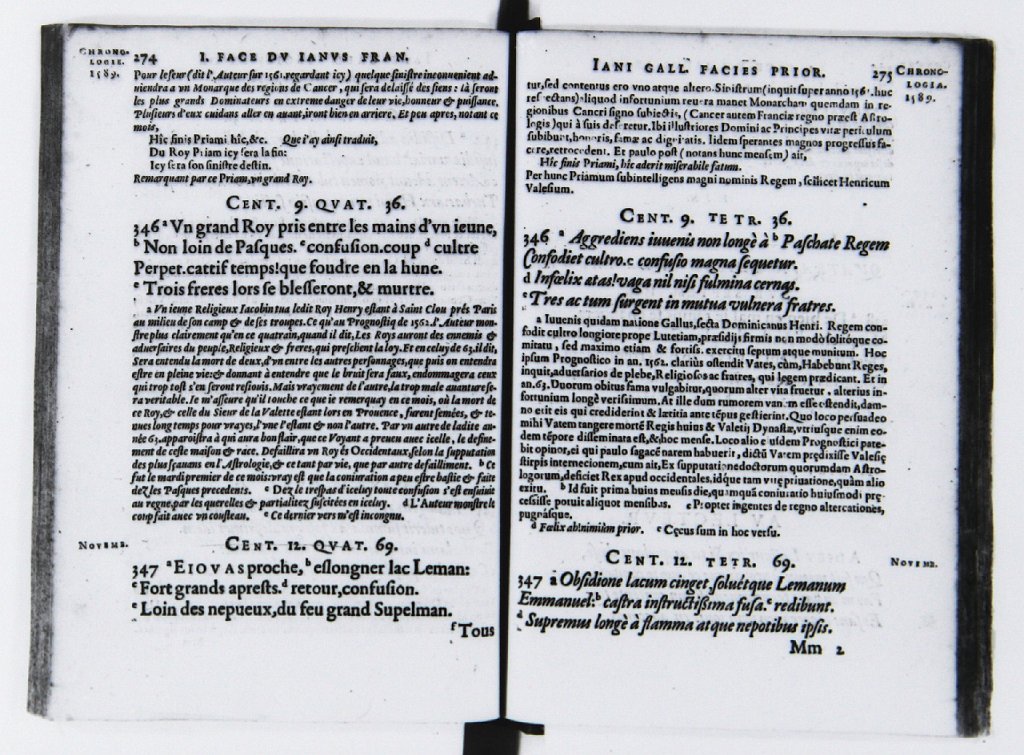 CHRONO-
LOGIE.
1589.
274 I. FACE DV IANVS FRAN.
Pour le seur (dit l'Auteur sur 1561. regardant icy) quelque sinistre inconuenient ad-
uiendra a vn Monarque des regions de Cancer, qui sera delaissé des siens: là seront
les plus grands Dominateurs en extreme danger de leur vie, honneur & puissance,
Plusieurs d'eux cuidans aller en auant, iront bien en arriere. Et peu apres, notant ce
mois,
Hic finis Priami hic, &c. Que i'ay ainsi traduit,
Du Roy Priam icy sera la fin:
Icy sera son sinistre destin.
Remarquant par ce Priam, vn grand Roy.
CENT. 9. QVAT. 36.
346 a Vn grand Roy pris entre les mains d'vn ieune,
b Non loin de Pasques. c confusion. coup d cultre
Perpet. cattif temps! que foudre en la hune.
e Trois freres lors se blesseront, & murtre.
a Vn ieune Religieux Iacobin tua ledit Roy Henry estant à Saint Clou prés Paris
au milieu de son camp & de ses troupes. Ce qu'au Prognostiq de 1562. l'Auteur mon-
stre plus clairement qu'en ce quatrain, quand il dit, Les Roys auront des ennemis &
aduersaires du peuple, Religieux & freres, qui preschent la loy. Et en celuy de 63. il dit,
Sera entendu la mort de deux, d'vn entre les autres personnages, que puis on entendra
estre en pleine vie: & donnant à entendre que le bruit sera faux, endommagera ceux
qui trop tost s'en seront resiouis. Mais vrayement de l'autre, la trop male auanture se-
ra veritable. Ie m'asseure qu'il touche ce que ie remerquay en ce mois, où la mort de
ce Roy, & celle du Sieur de la Valette estant lors en Prouence, furent semées, & te-
nues long temps pour vrayes, l'vne l'estant & non l'autre. Par vn autre de ladite an-
née 63. apparoistra à qui aura bon flair, que ce Voyant a preueu auec icelle, le define-
ment de ceste maison & race. Defaillira vn Roy és Occidentaux, selon la supputation
des plus sçauans en l'Astrologie, & ce tant par vie, que par autre defailliment. b Ce
fut le mardi premier de ce mois: vray est que la coniuration a peu estre bastie & faite
dez les Pasques precedents. c Dez le trespas d'iceluy toute confusion s'est ensuiuit
au regne, par les querelles & partialitez suscitées en iceluy. d L'Auteur monstre le
coup fait auec vn cousteau. e Ce dernier vers m'est incongnu.
NOVEMB.
CENT. 12. QVAT. 69.
347 a EIOVAS proche, b eslongner lac Leman:
c Fort grands aprests. d retour, confusion.
e Loin des nepueux, du feu grand Supelman.
f Tous
IANI GALL. FACIES PRIOR. 275
CHRONO-
LOGIA.
1589.
tur, sed contentus ero vno atque altero. Sinistrum (inquit super anno 1561. huc
respectans) aliquod infortunium reuera manet Monarcham quemdam in re-
gionibus Cancri signo subiectis, (Cancer autem Franciæ regno præest Astro-
logis) qui à suis deseretur. Ibi illustriores Domini ac Principes vitæ periculum
subibunt, honoris, famæ ac dignitatis. Iidem sperantes magnos progressus fa-
cere, retrocedent. Et paulo post (notans hunc mensem) ait,
Hic finis Priami, hic aderit miserabile fatum.
Per hunc Priamum subintelligens magni nominis Regem, scilicet Henricum
Valesium.
CENT. 9. TETR. 36.
346 a Aggrediens iuuenis non longè à b Paschate Regem
Confodiet cultro. c confusio magna sequetur.
d Infœlix ætas! vaga nil nisi fulmina cernas.
e Tres actum surgent in mutua vulnera fratres.
a Iuuenis quidam natione Gallus, secta Dominicanus Henri. Regem con-
fodit cultro longiore prope Lutetiam, præsidijs firmis non modò solitóque co-
mitatu, sed maximo etiam & fortiss. exercitu septum atque munitum. Hoc
ipsum Prognostico in an. 1562. clariùs ostendit Vates, cùm, Habebunt Reges,
inquit, aduersarios de plebe, Religiosos ac fratres, qui legem prædicant. Et in
an. 63. Duorum obitus fama vulgabitur, quorum alter vita fruetur, alterius in-
fortunium longè verissimum. At ille dum rumorem vanum esse ostendit, dam-
no erit eis qui crediderint & lætitia ante tēpus gestierint. Quo loco persuadeo
mihi Vatem tangere mortē Regis huius & Valetij Dynastæ, vtriusque enim eo-
dem tēpore disseminata est, & hoc mense. Loco alio eiusdem Prognostici pate-
bit opinor, ei qui paulo sagacē narem habuerit, dictū Vatem prędixisse Valesię
stirpis internecionem, cum ait, Ex supputatione doctorum quorumdam Astro-
logorum, deficiet Rex apud occidentales, idque tam vitę priuatione, quàm alio
exitu. b Id fuit prima huius mensis die, quamquā coniuratio huiusmodi prę-
cessisse potuit aliquot mensibus. c Propter ingentes de regno altercationes,
pugnásque.
d Fœlix ab nimiùm prior. e Cęcus sum in hoc versu.
CENT. 12. TETR. 69.
NOVEMB.
347 a Obsidione lacum cinget, soluétque Lemanum
Emmanuel: b castra instructissima fusa. c redibunt.
d Supremus longè à flamma atque nepotibus ipsis.
Mm 2